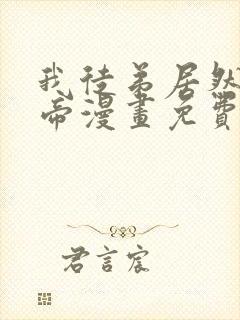 我徒弟居然
帝漫畫免費
君言宸